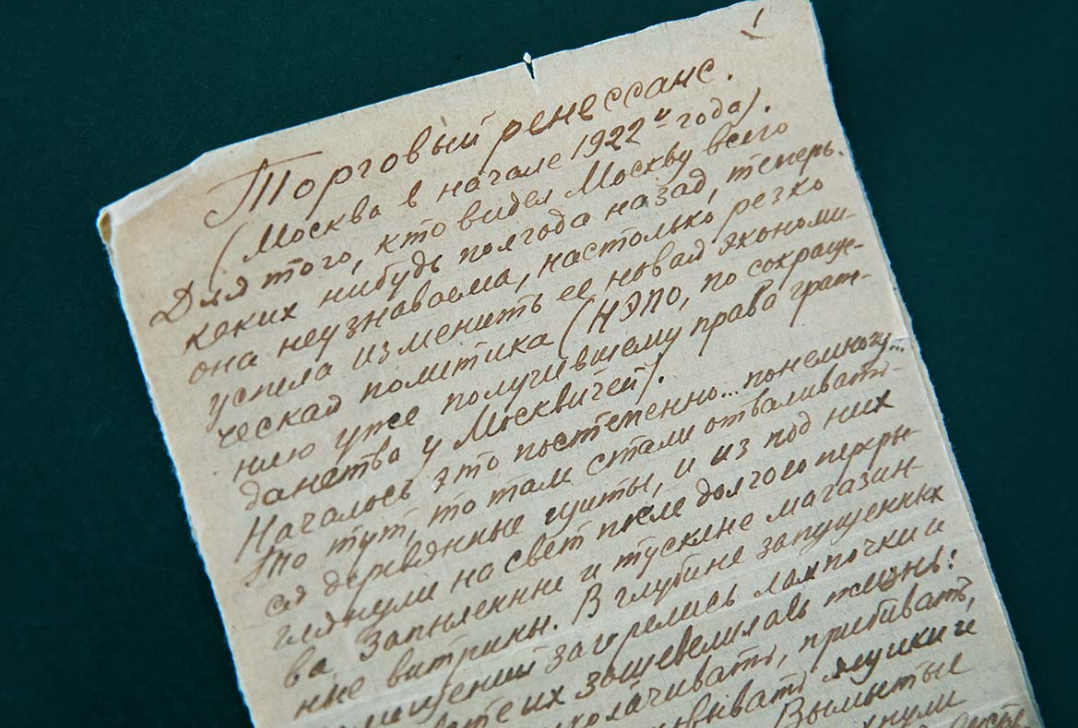 1
Торговый ренессанс.
(Москва в начале 1922-й года).
Для того, кто видел Москву всего
каких нибудь полгода назад, теперь.
она неузнаваема, настолько резко
успела изменить ее новая экономи-
ческая политика (НЭПО, по сокраще-
нию уже получившему права граж-
данства у Москвичей).
Началось это постепенно... понемногу...
То тут, то там стали отваливать-
ся деревянные щиты, и из под них
глянули на свет после долгого переры-
ва запыленные и тусклые магазин-
ные витрины. В глубине запущенных
помещений загорелись лампочки и
свете их зашевелилась жизнь:
приколачивать, прибивать,
ящики и
Вымытые